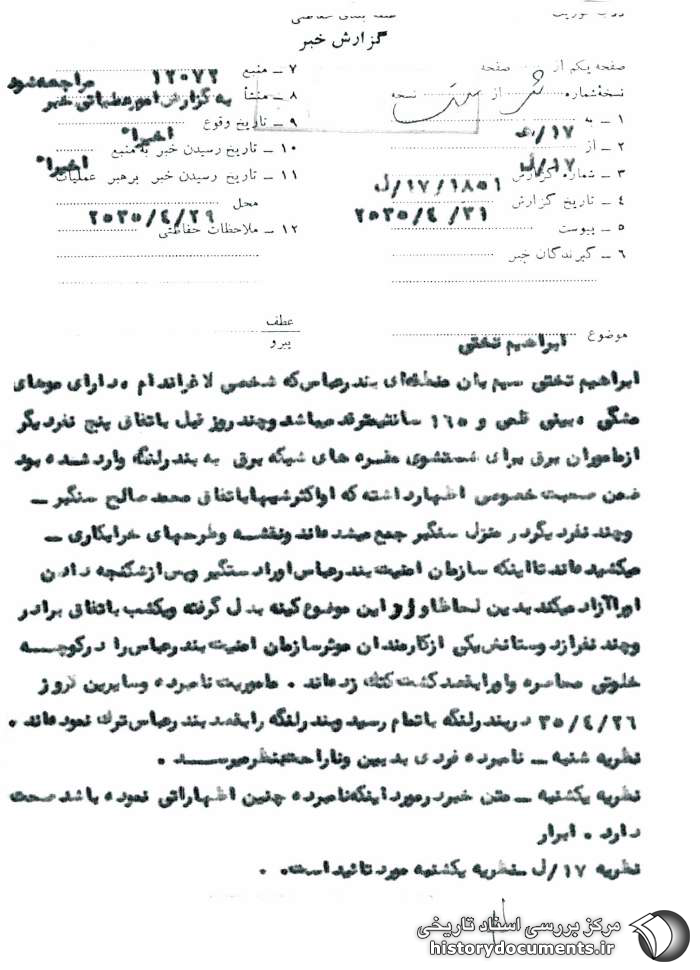 گزارش خبر
صفحه یکم از صفحه
نسخه شماره از نسخه
۱ ـ به ۱۷/ه
۲ ـ از ۱۷/ل
۳ ـ شماره گزارش ۱۸۵۱/۱۷/ل
۴ ـ تاریخ گزارش ۲۵۳۵/۴/۳۱
۵ ـ پیوست
۶ ـ گیرندگان خبر
۷ ـ منبع ۱۲۰۷۲ مراجعه شود
۸ ـ منشأ به گزارش امور عملیاتی خبر
۹ ـ تاریخ وقوع اخیراً
۱۰ ـ تاریخ رسیدن خبر به منبع اخیراً
۱۱ ـ تاریخ رسیدن خبر برهبر عملیات
محل ۲۵۳۵/۴/۲۹
۱۲ ـ ملاحظات حفاظتی
عطف
پیرو
موضوع ابراهیم تختی
ابراهیم تختی سیم بان منطقه‌ای بندرعباس که شخصی لاغراندام ، دارای موهای
مشگی ، بینی قلمی و ۱۶۵ سانتیمترقد میباشد وچند روز قبل باتفاق پنج نفردیگر
ازماموران برق برای شستشوی مقره های شبکه برق به بندرلنگه وارد شده بود
ضمن صحبت خصوصی اظهارداشته که اواکثرشبهاباتفاق محمد صالح سنگبر ـ
وچند نفردیگردر منزل سنگبر جمع میشده‌اند ونقشه وطرحهای خرابکاری ـ
میکشیده‌اند تااینکه سازمان امنیت بندرعباس اورادستگیر وپس ازشکنجه دادن
اوراآزاد میکند بدین لحاظ او از این موضوع کینه بدل گرفته ویکشب باتفاق برادر
وچند نفرازدوستانش یکی ازکارمندان موثرسازمان امنیت بندرعباس را درکوچه
خلوتی محاصره واورابقصد کشت کتک زده‌اند . ماموریت نامبرده وسایرین در روز
۳۵/۴/۲۶ دربندرلنگه باتمام رسید وبندرلنگه رابقصد بندرعباس ترک نموده‌اند .
نظریه شنبه ـ نامبرده فردی بدبین وناراحت بنظرمیرسد .
نظریه یکشنبه ـ متن خبردرمورد اینکه نامبرده چنین اظهاراتی نموده باشد صحت
دارد . ابرار
نظریه ۱۷/ل ـ نظریه یکشنبه مورد تائید است .
مرکز بررسی اسناد تاریخی
historydocuments.ir